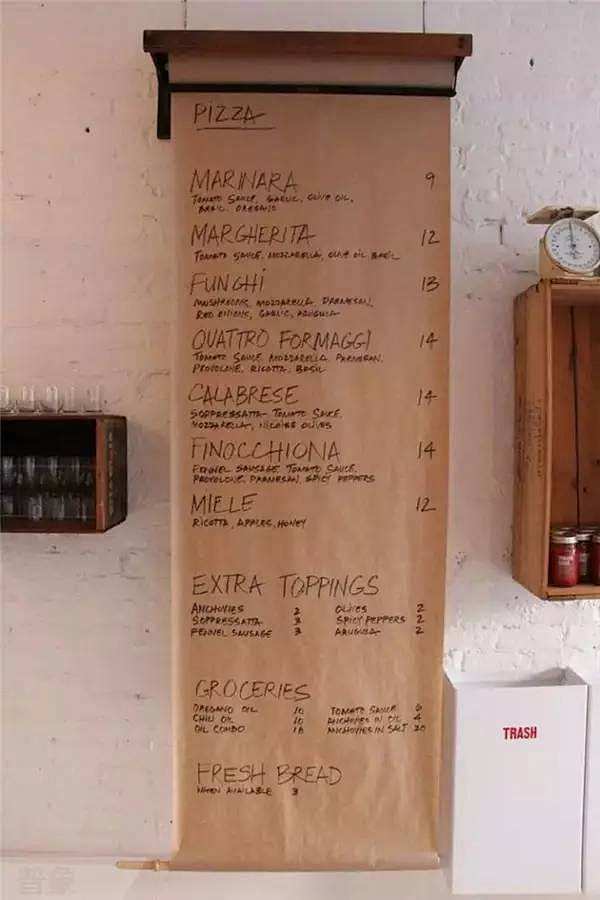 PIZZA
MARINARA 9
TOMATO SAUCE, GARLIC, OLIVE OIL,
BASIL, OREGANO
MARGHERITA 12
TOMATO SAUCE, MOZZARELLA, OLIVE OIL BASIL
FUNGHI 13
MUSHROOMS, MOZZARELLA, PARMESAN,
RED ONIONS, GARLIC, ARUGULA
QUATTRO FORMAGGI 14
TOMATO SAUCE, MOZZARELLA, PARMESAN,
PROVOLONE, RICOTTA, BASIL
CALABRESE 14
SOPPRESSATTA TOMATO SAUCE,
MOZZARELLA, NICOISE OLIVES
FINOCCHIONA 14
FENNEL SAUSAGE, TOMATO SAUCE,
PROVOLONE, PARMESAN, SPICY PEPPERS
MIELE 12
RICOTTA, APPLES, HONEY
EXTRA TOPPINGS
ANCHOVIES 2 OLIVES 2
SOPPRESSATTA 3 SPICY PEPPERS 2
FENNEL SAUSAGE 3 ARUGULA 2
GROCERIES
OREGANO OIL 10 TOMATO SAUCE 6
CHILI OIL 10 ANCHOVIES IN OIL 4
OIL COMBO 18 ANCHOVIES IN SALT 20
FRESH BREAD
WHEN AVAILABLE 3
TRASH